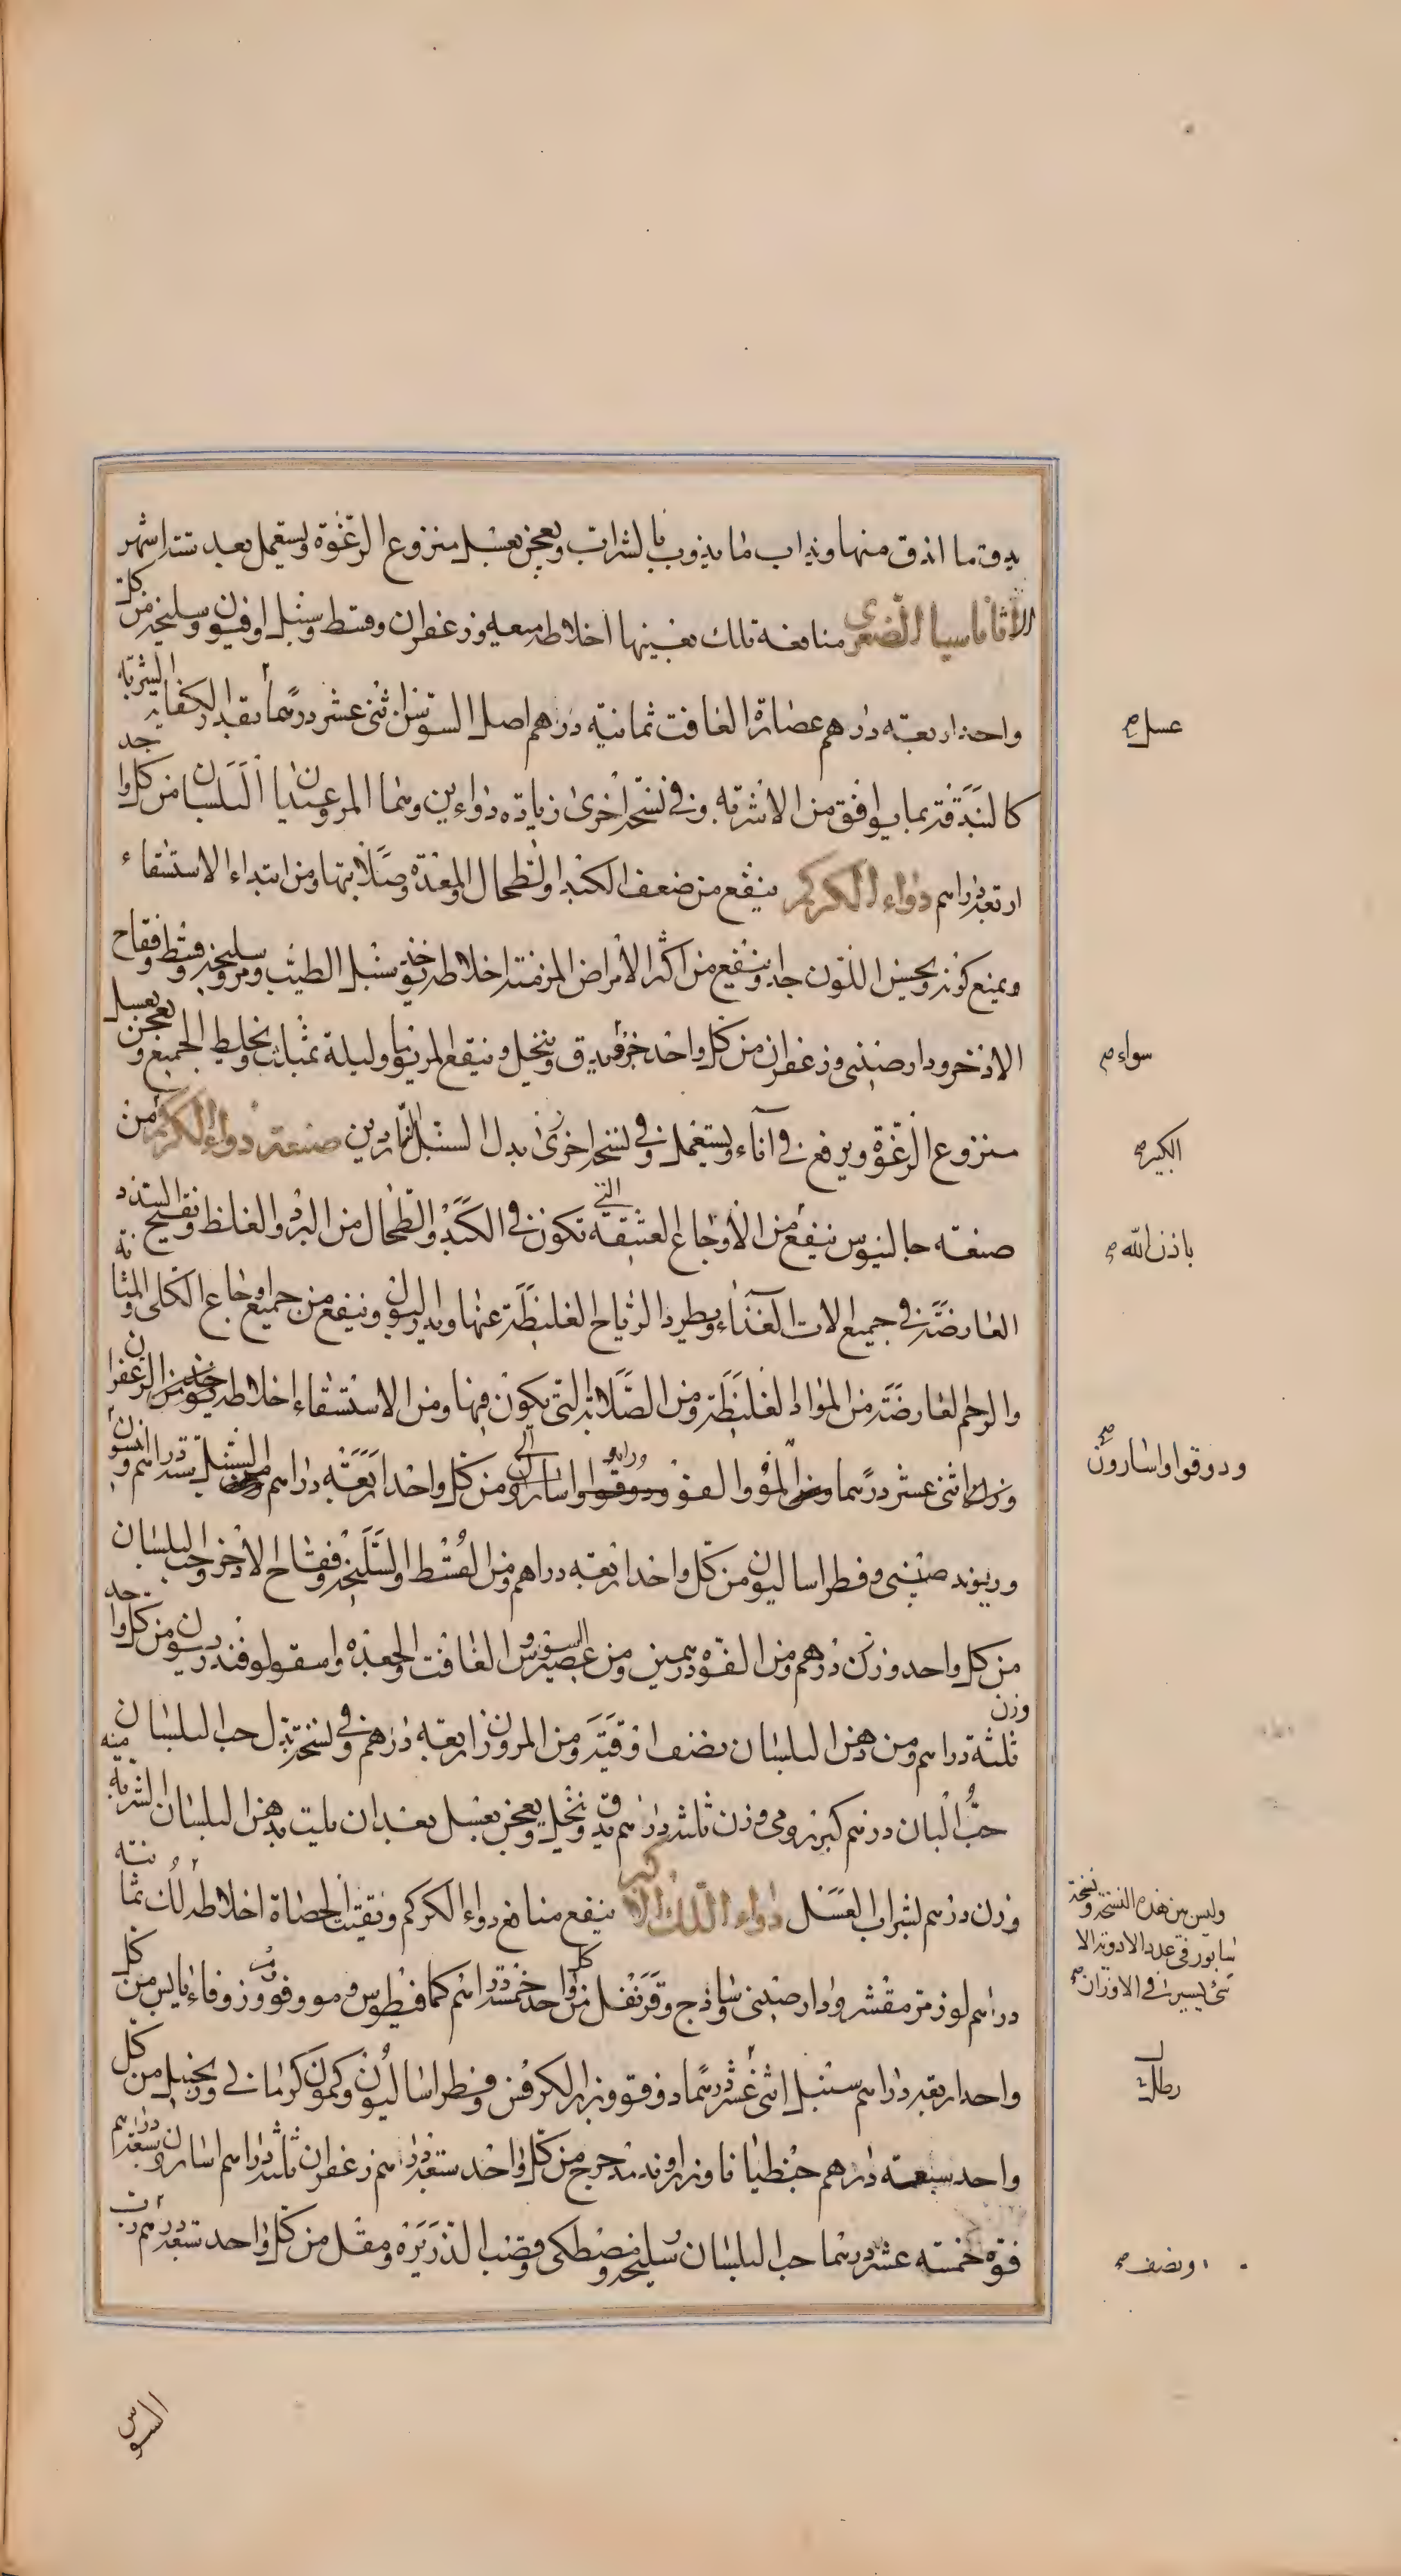 يدق ما اندق منها ويذاب ما يذوب بالشراب ويعجن بعسل منزوع الرغوة ويستعمل بعد ستة اشهر
الاثاناسيا الصغرى منافعه تلك بعينها اخلاطه ميعه وزعفران وقسط وسنبل وافيون وسليخه من كل
واحد اربعة دراهم عصارة الغافت ثمانية دراهم اصل السوسن اثنى عشر درهما بقدر الكفاية الشربة
عسل
كالبندقة بما يوافق من الاشربة وفي نسخة اخرى زيادة دواءين وهما المر وعيدان البلسان من كل واحد
اربعة دراهم دواء الكركم ينفع من ضعف الكبد والطحال والمعدة وصلابتها ومن ابتداء الاستسقاء
ويمنع كونه ويحسن اللون جدا وينفع من اكثر الامراض المزمنة اخلاطه يؤخذ سنبل الطيب ومر وسليخه وقسط وفقاح
الاذخر ودارصينى وزعفران من كل واحد جزء يدق وينخل وينقع المر يوما وليلة بمثلث ويخلط الجميع ويعجن بعسل
سواء
منزوع الرغوة ويرفع في اناء ويستعمل وفي نسخة اخرى بدل السنبل الناردين صنعة دواء الكركم من
الكبير
صنعه جالينوس ينفع من الاوجاع العتيقه التي تكون في الكبد والطحال من البرد والغلظ وتفتيح السدد
باذن الله
العارضة في جميع الات الغذاء ويطرد الرياح الغليظة عنها ويدر البول وينفع من جميع اوجاع الكلى والمثانة
والرحم العارضة من المواد الغليظة ومن الصلابة التى يكون فيها ومن الاستسقاء اخلاطه يؤخذ من الزعفران
وزن اثنى عشر درهما ومن المو والفو ودوقوا واسارون من كل واحد اربعة دراهم ومن السنبل ستة دراهم وانيسون
ودوقوا واسارون
وريوند صينى وفطراساليون من كل واحد اربعة دراهم ومن القسط والسليخه وفقاح الاذخر وحب البلسان
من كل واحد وزن درهم ومن الفوه درهمين ومن عصير السوس والغافت والجعده واسقولوقندريون من كل واحد
وزن ثلثة دراهم ومن دهن البلسان نصف اوقية ومن المر وزن اربعة دراهم وفي نسخة بدل حب البلسان
حب البان درهم كبر رومى وزن ثلثة دراهم يدق وينخل ويعجن بعسل بعد ان يلت بدهن البلسان الشربة منه
وزن درهم بشراب العسل دواء اللك الاكبر ينفع منافع دواء الكركم وتفتيت الحصاة اخلاطه لك ثمانية
وليس بين هذه النسخة ونسخة
سابور في عدد الادوية الا
شئ يسير في الاوزان
دراهم لوز مر مقشر ودارصينى وساذج وقرنفل من كل واحد خمسة دراهم كمافيطوس ومو وفو وزوفاء يابس من كل
واحد اربعة دراهم سنبل اثنى عشر درهما دوقو وبزر الكرفس وفطراساليون وكمون كرمانى وزنجبيل من كل
واحد سبعة دراهم جنطيانا وزراوند مدحرج من كل واحد ستة دراهم زعفران ثلثة دراهم اسارون سبعة دراهم
فوه خمسه عشر درهما حب البلسان وسليخه ومصطكى وقصب الذريره ومقل من كل واحد تسعة دراهم رب
ونصف
السوس